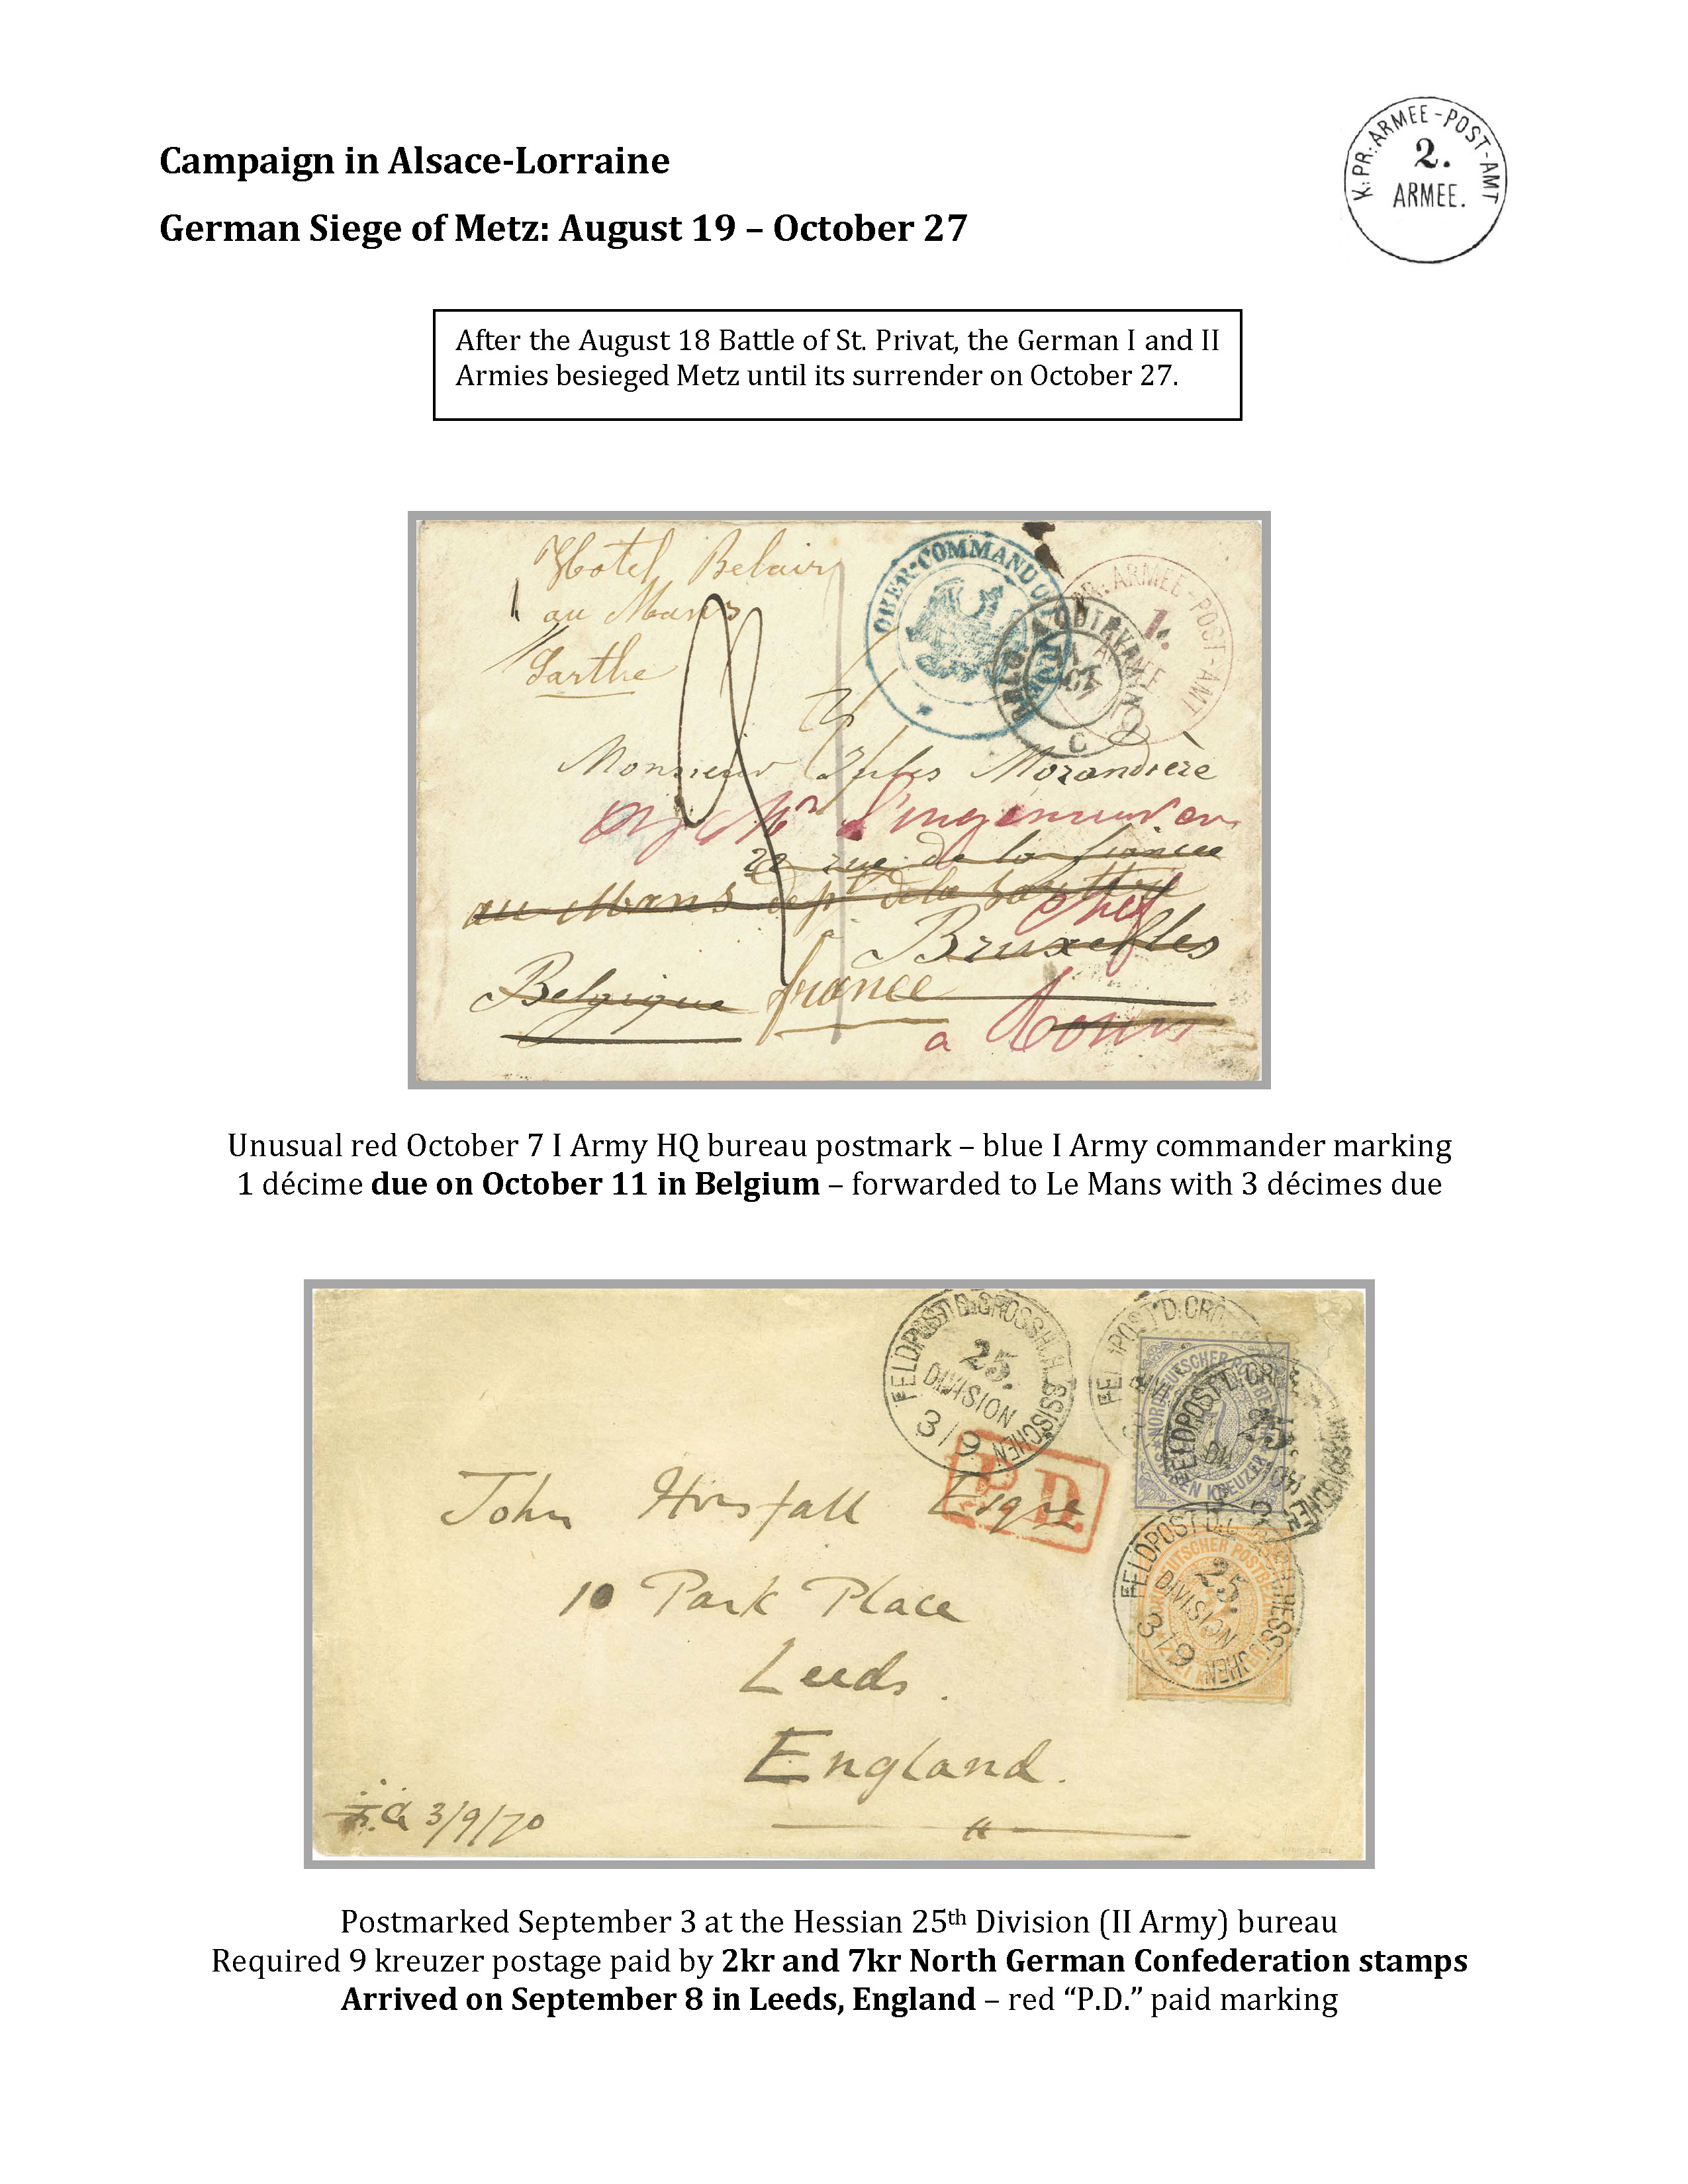 Campaign in Alsace-Lorraine
German Siege of Metz: August 19 – October 27
K:PR:ARMEE-POST-AMT
2.
ARMEE.
After the August 18 Battle of St. Privat, the German I and II
Armies besieged Metz until its surrender on October 27.
Hotel Belair
au Mans
Sarthe
OBER-COMMANDO
PR:ARMEE-POST-AMT
1.
Monsieur Jules Morandière
l'ingenieur en
22 rue de la
au Mans dept de la Sarthe
chef
à Bruxelles
Belgique france
a Tours
Unusual red October 7 I Army HQ bureau postmark – blue I Army commander marking
1 décime due on October 11 in Belgium – forwarded to Le Mans with 3 décimes due
FELDPOST D. GROSSH. HESSISCHEN
25.
DIVISION
3/9
FELDPOST D. GRO
NORDDEUTSCHER POSTBEZIRK
7
SIEBEN KREUZER
FELDPOST D. GR
25
P.D.
John Horsfall Esqre
10 Park Place
Leeds.
England.
FELDPOST D. G HESSISCHEN
25.
DIVISION
3/9
NORDDEUTSCHER POSTBEZIRK
ZWEI KREUZER
3/9/70
Postmarked September 3 at the Hessian 25th Division (II Army) bureau
Required 9 kreuzer postage paid by 2kr and 7kr North German Confederation stamps
Arrived on September 8 in Leeds, England – red “P.D.” paid marking